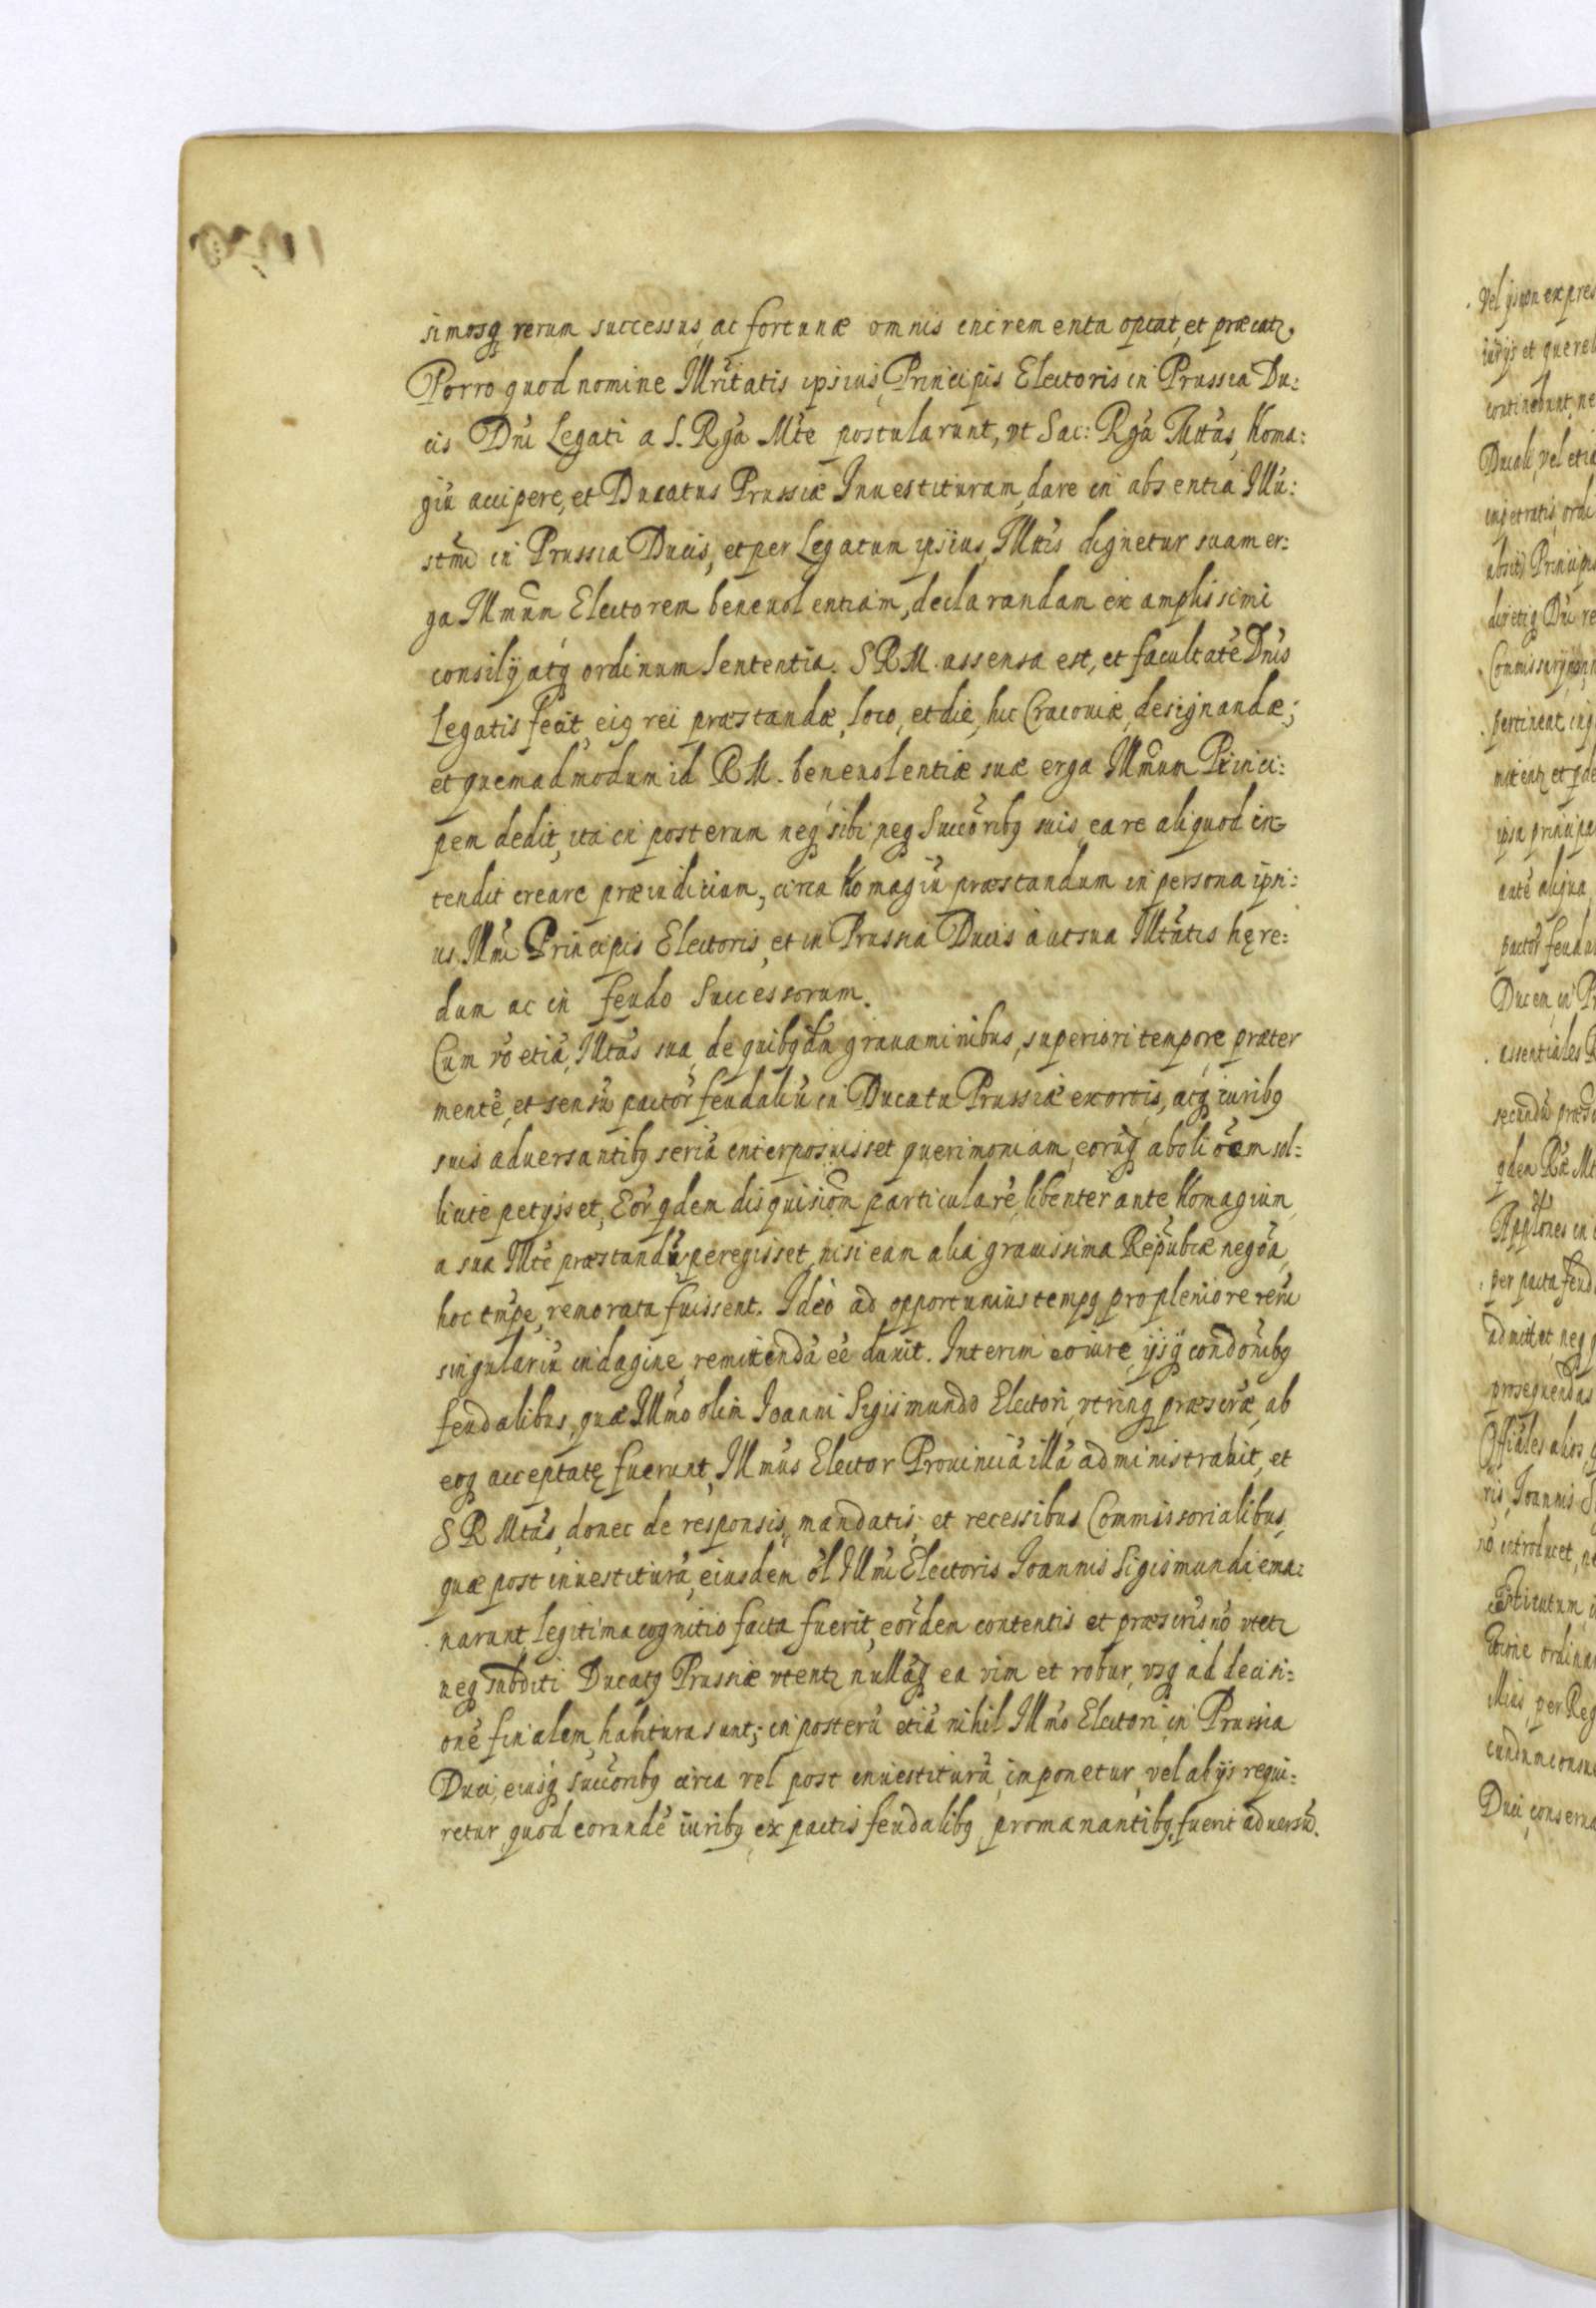 simosq rerum successus, ac fortunæ omnis incrementa optat, et præcatr,
Porro quod nomine Illrtatis ipsius, Principis Electoris in Prussia Du:
cis Dni Legati a S. Rga Mte postularunt, vt Sac: Rga Mttas, homa:
giu accipere, et Ducatus Prussiæ Inuestituram, dare in absentia Illu:
stmi in Prussia Ducis, et per Legatum ipsius, Illttis dignetur suam er:
ga Illmum Electorem beneuolentiam, declarandam ex amplissimi
consilij atq ordinum sententia. S R M. assensa est, et facultate Dnis
Legatis fecit, eiq rei præstandæ, loco, et die, hic Cracouiæ, designandæ;
et quemadmodum id R M. beneuolentiæ suæ erga Illmum Princi:
pem dedit, ita in posterum neq sibi, neq Succoribq suis, ea re aliquod in
tendit creare præiudicium, circa homagiu præstandum in persona ipsi:
us Illmi Principis Electoris, et in Prussia Ducis aut sua Illtatis hęre:
dum ac in feudo Successorum.
Cum vo etia, Illtas sua, de quibqdm grauaminibus, superiori tempore, præter
mente, et sensu pactor feudaliu in Ducatu Prussiæ exortis, atq iuribq
suis aduersantibq seria interposuisset querimoniam, eoruq abolioem sol:
licite petysset, Eor qdem disquisiom particulare, libenter ante homagium
a sua Illte præstandu, peregisset, nisi eam alia grauissima Reipubcæ negoa,
hoc tmpe, remorata fuissent. Ideo ad opportunius tempq pro pleniore reru
singulariu indagine, remittenda ee duxit. Interim eo iure, ijsq condonibq
feudalibus, quæ Illmo olim Ioanni Sigismundo Electori, vtrinq præscræ, ab
eoq acceptatę fuerunt, Illmus Elector Prouincia illa administrabit, et
S R Mtas, donec de responsis, mandatis, et recessibus Commissorialibus,
quæ post inuestitura, eiusdem ol Illmi Electoris Ioannis Sigismundi ema:
narunt, legitima cognitio facta fuerit, eorden contentis et præscris no vtetr
neq subditi Ducatq Prussiæ vtentr nullaq ea vim et robur, vsq ad decisi:
one finalem, habitura sunt; in posteru etia nihil Illmo Electori, in Prussia
Duci, eiusq succoribq circa vel post inuestitura, imponetur, vel ab ijs requi:
retur, quod eorunde iuribq ex pactis feudalibq promanantibq, fuerit aduersu.